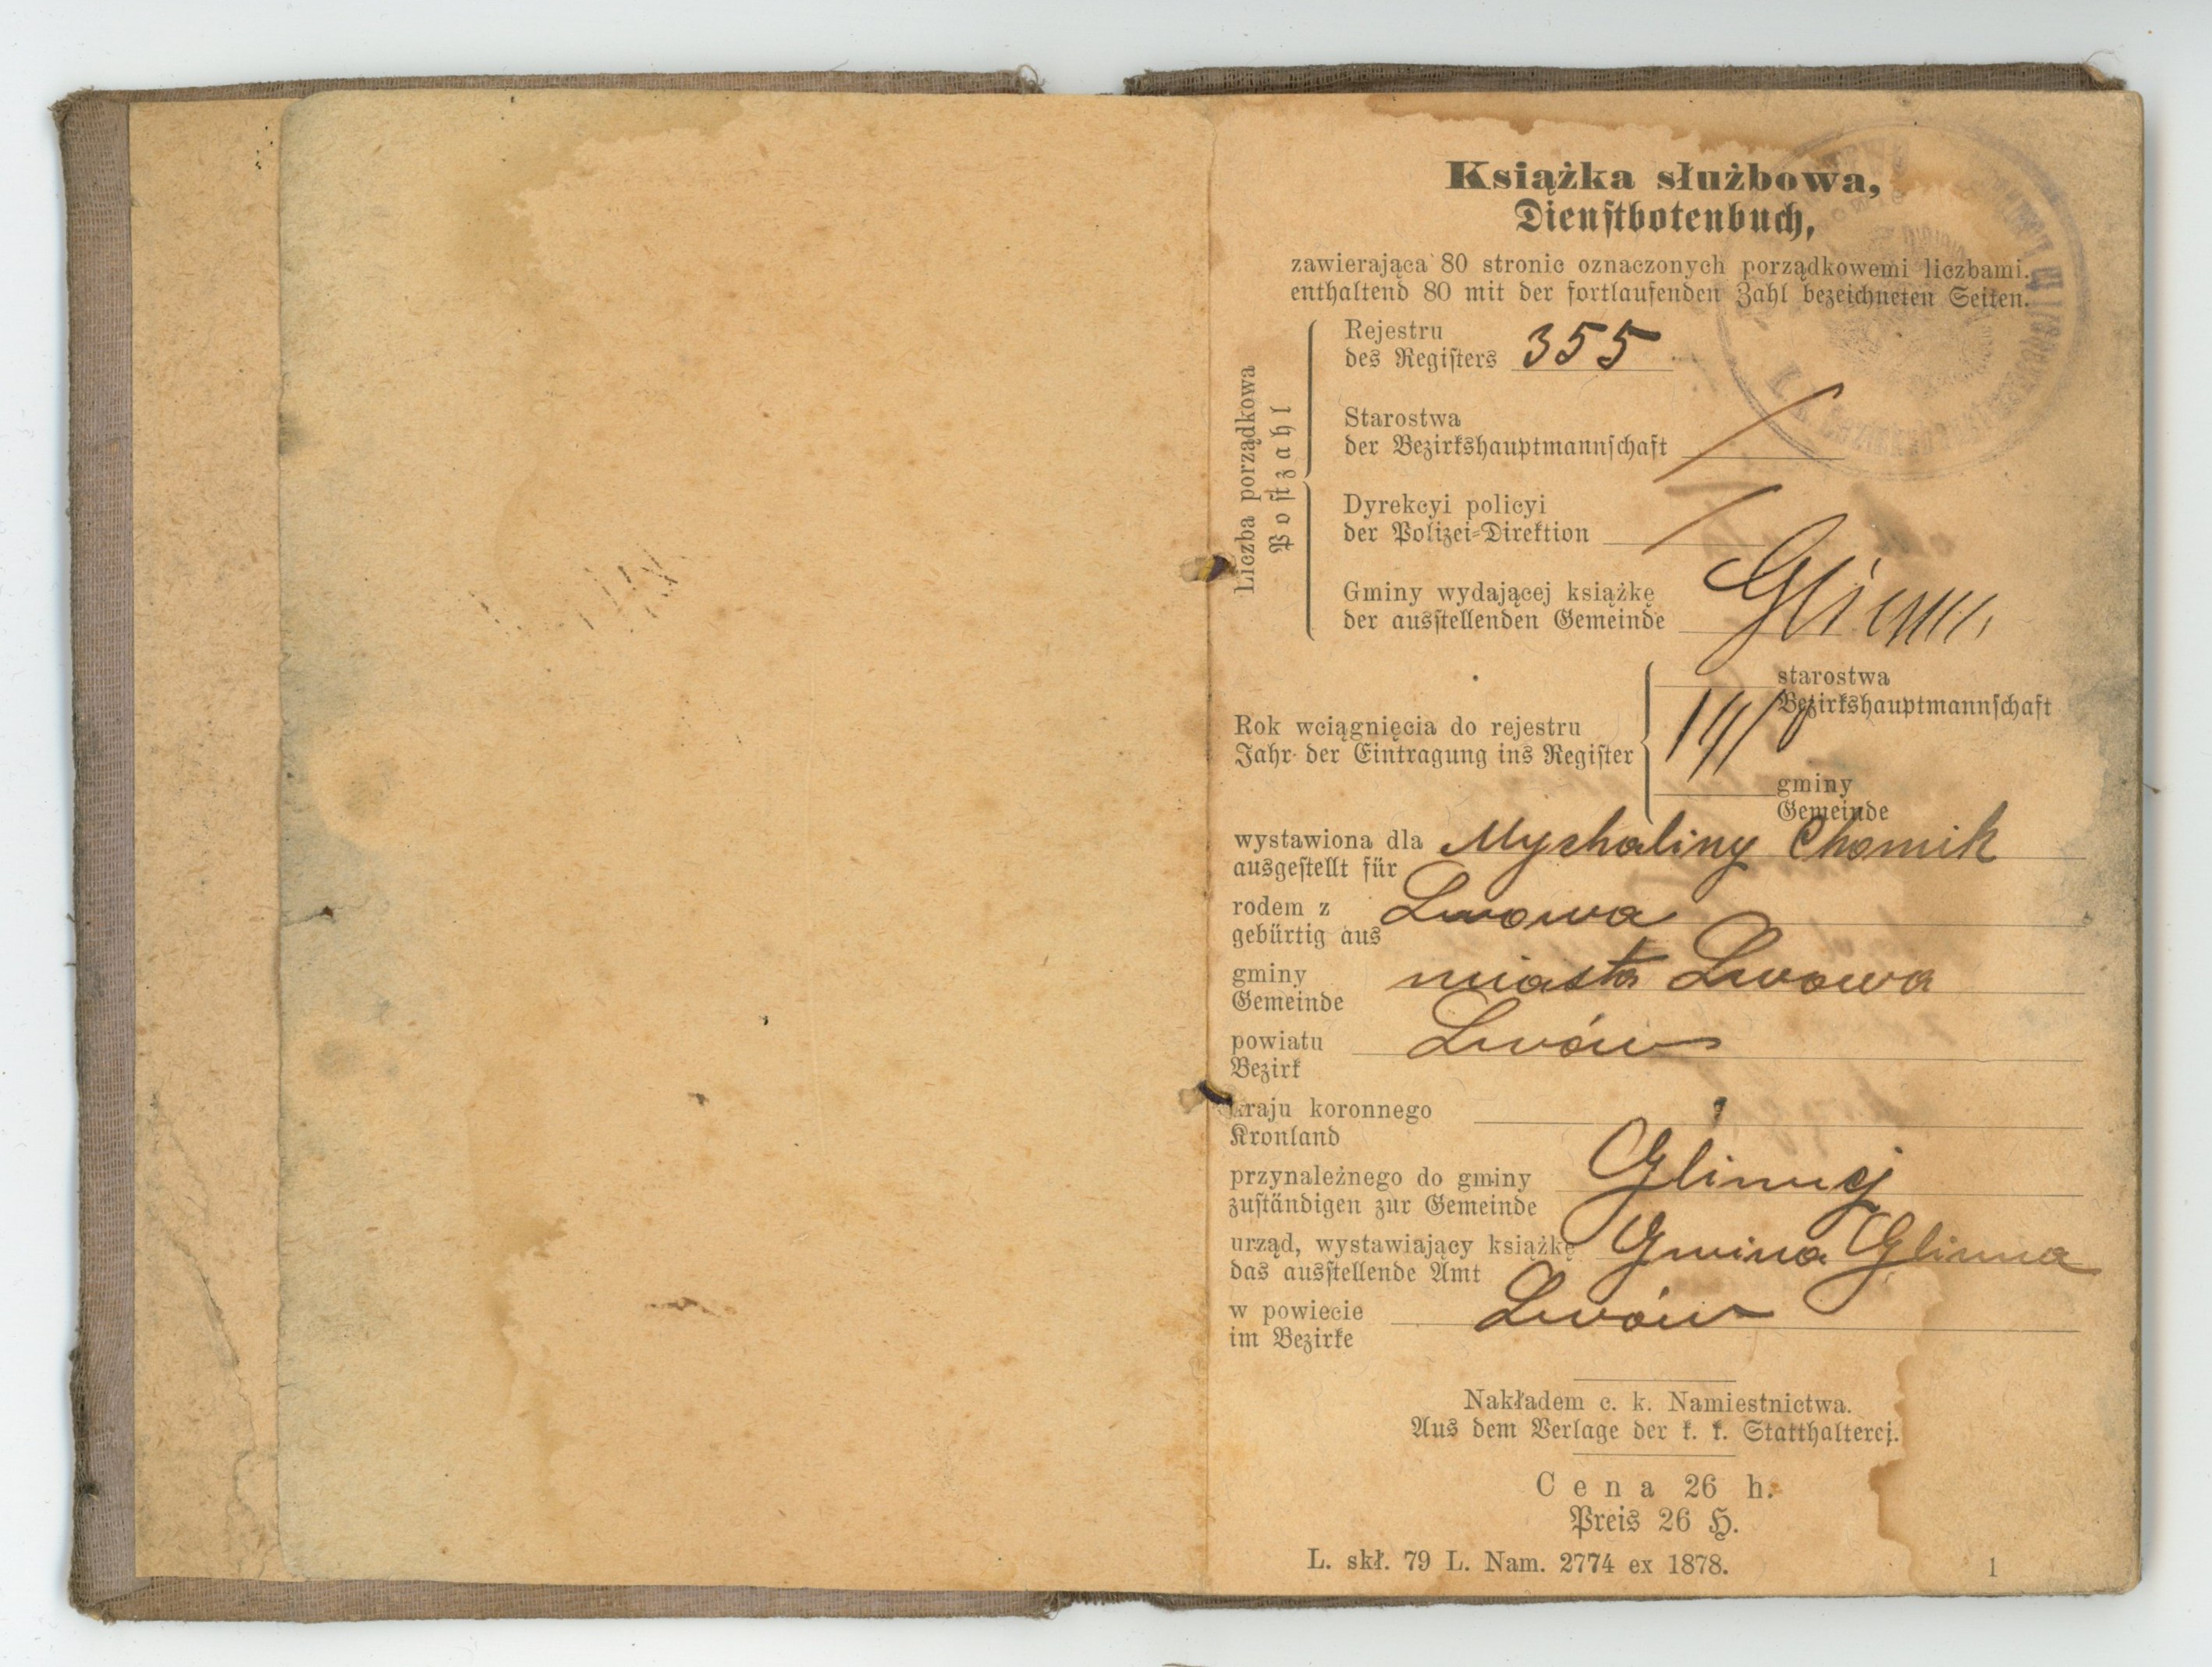 Książka służbowa,
Dienstbotenbuch,
zawierająca 80 stronic oznaczonych porządkowemi liczbami.
enthaltend 80 mit der fortlaufenden Zahl bezeichneten Seiten.
Liczba porządkowa
Postzahl
Rejestru
des Registers 355
Starostwa
der Bezirkshauptmannschaft /
Dyrekcyi policyi
der Polizei-Direktion /
Gminy wydającej książkę
der ausstellenden Gemeinde
starostwa
Bezirkshauptmannschaft
Rok wciągnięcia do rejestru
Jahr der Eintragung ins Register
gminy
Gemeinde
wystawiona dla Mychaliny Chomik
ausgestellt für
rodem z Lwowa
gebürtig aus
gminy miasta Lwowa
Gemeinde
powiatu Lwów
Bezirk
kraju koronnego
Kronland
przynależnego do gminy Glinnej
zuständigen zur Gemeinde
urząd, wystawiający książkę Gmina Glinna
das ausstellende Amt
w powiecie Lwów
im Bezirke
Nakładem c. k. Namiestnictwa.
Aus dem Verlage der k. k. Statthalterei.
Cena 26 h.
Preis 26 H.
L. skł. 79 L. Nam. 2774 ex 1878.
1